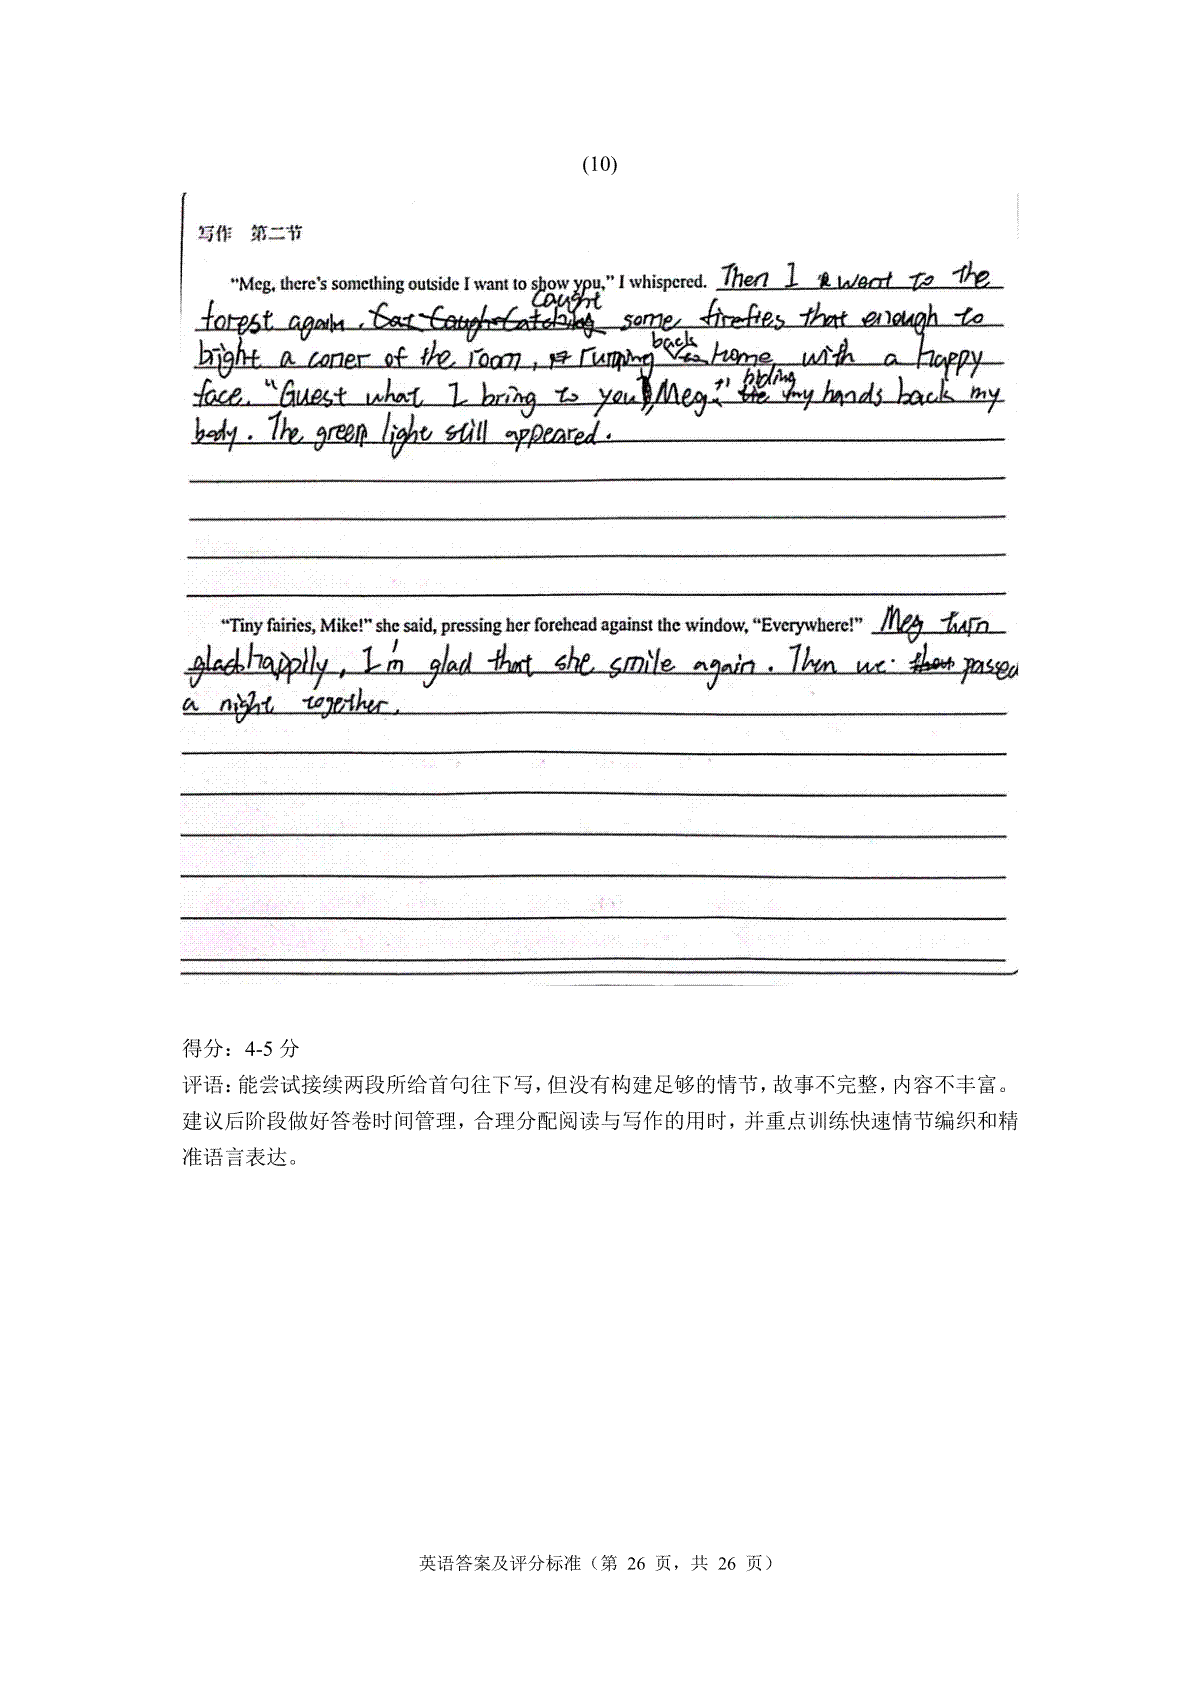 (10)
写作 第二节
“Meg, there's something outside I want to show you,” I whispered. Then I went to the
caught
forest again. some fireflies that enough to
back
bright a coner of the room, running home with a happy
hiding
face. "Guest what I bring to you, Meg." my hands back my
body. The green light still appeared.
“Tiny fairies, Mike!” she said, pressing her forehead against the window, “Everywhere!” Meg turn
happily, I'm glad that she smile again. Then we passed
a night together.
得分：4-5 分
评语：能尝试接续两段所给首句往下写，但没有构建足够的情节，故事不完整，内容不丰富。
建议后阶段做好答卷时间管理，合理分配阅读与写作的用时，并重点训练快速情节编织和精
准语言表达。
英语答案及评分标准（第 26 页，共 26 页）